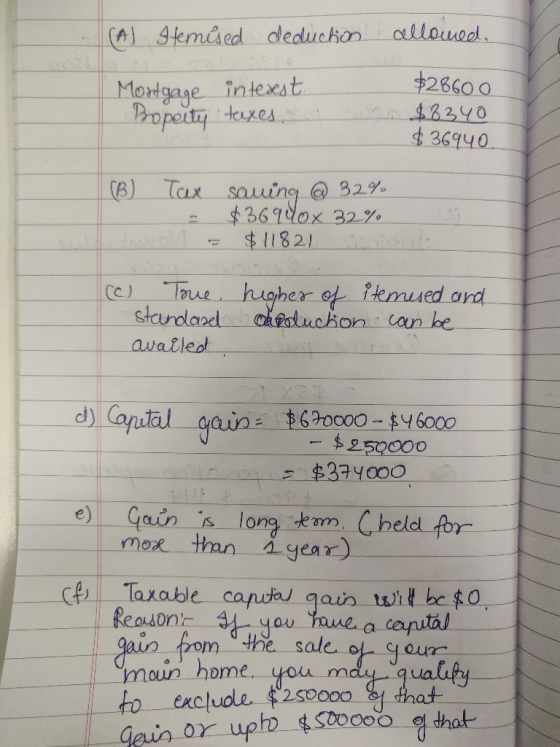 (A) Itemised deduction allowed.
Mortgage interest $28600
Property taxes. $8340
$36940.
(B) Tax saving @ 32%
= $36940 x 32%
= $11821
(C) True, higher of itemised and
standard deduction can be
availed.
d) Capital gain = $670000 - $46000
- $250000
= $374000
e) Gain is long term. (held for
more than 1 year)
(f) Taxable capital gain will be $0.
Reason:- If you have a capital
gain from the sale of your
main home, you may qualify
to exclude $250000 of that
gain or upto $500000 of that